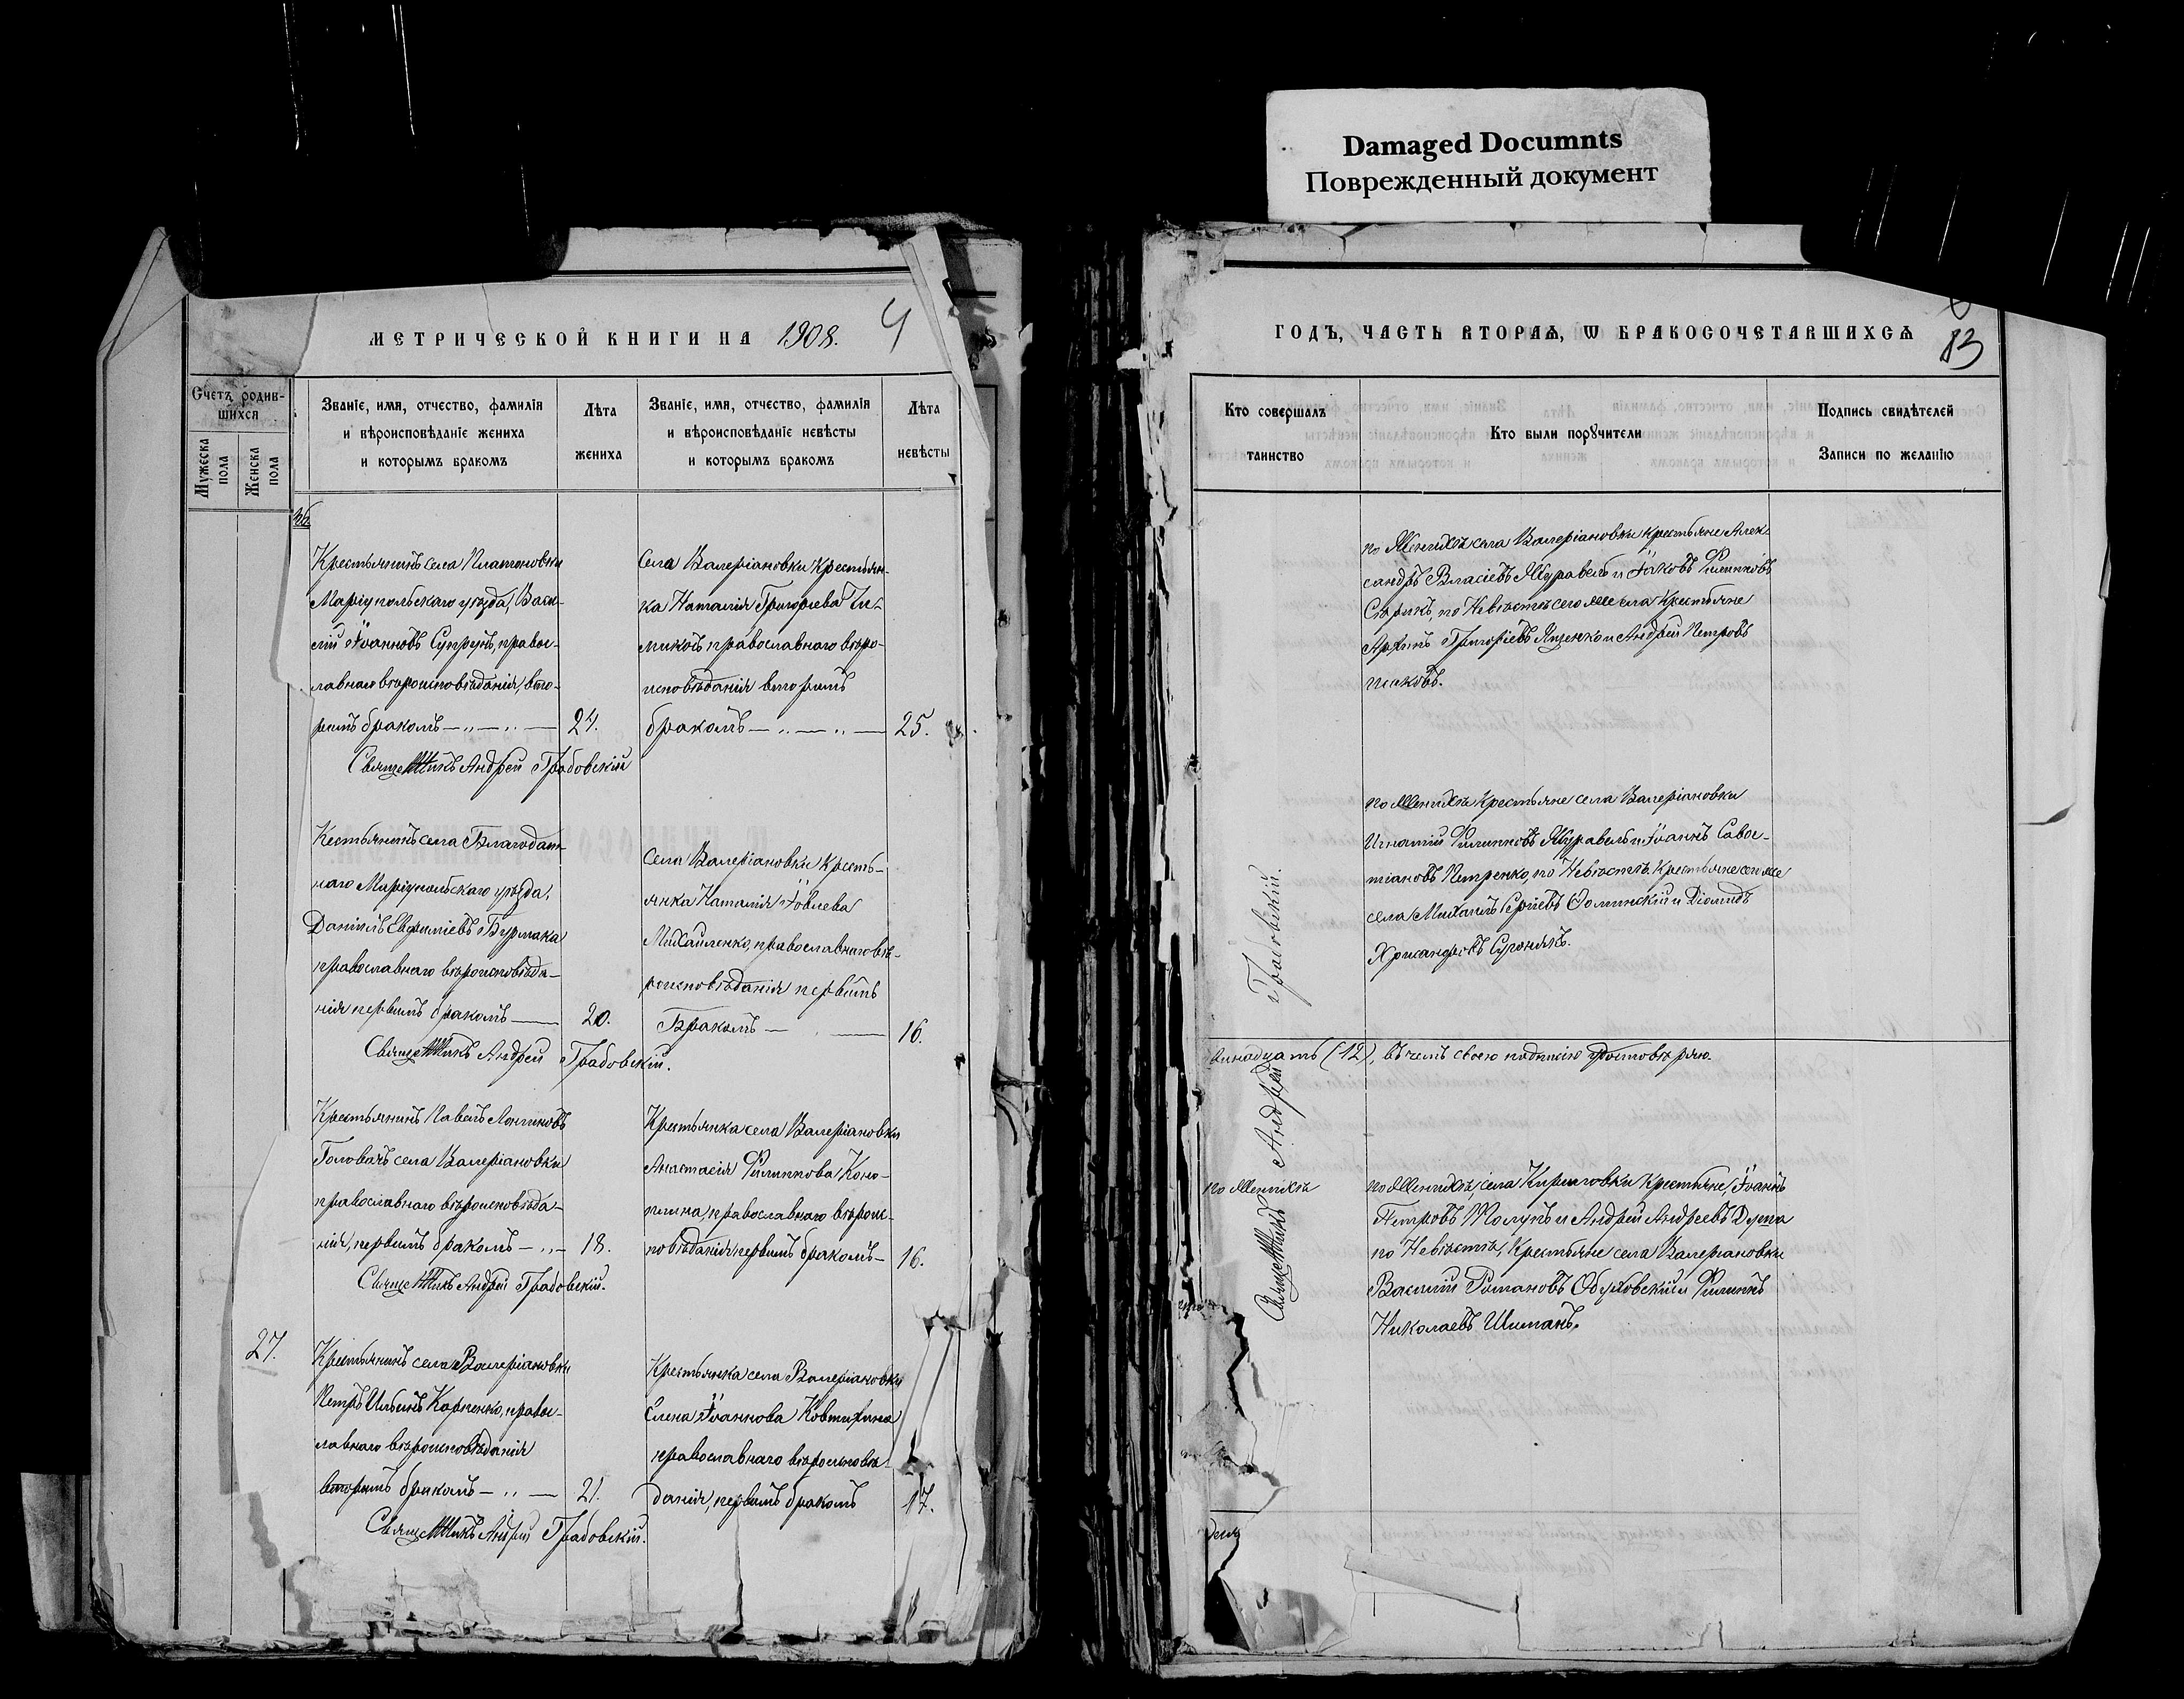 Damaged Documnts
Поврежденный документ
МЕТРИЧЕСКОЙ КНИГИ НА 1908.
4
Счетъ родив-
шихся
Мужеска
пола
Женска
пола
Званіе, имя, отчество, фамилія
и вѣроисповѣданіе жениха
и которымъ бракомъ
Лѣта
жениха
Званіе, имя, отчество, фамилія
и вѣроисповѣданіе невѣсты
и которымъ бракомъ
Лѣта
невѣсты
Крестьянинъ села Платоновки
Маріупольскаго уѣзда, Васи-
лій Іоанновъ Супрунъ, правос-
лавнаго вѣроисповѣданія вто-
рымъ бракомъ — „ — „ — 24.
Села Валеріановки крестьян-
ка Наталія Григорьева
православнаго вѣро-
исповѣданія вторымъ
бракомъ — „ — „ — 25.
Священникъ Андрей Грабовскій
Кестьянинъ села Благодат-
наго Маріупольскаго уѣзда,
Даніилъ Евфиміевъ Бурлака
православнаго вѣроисповѣда-
нія первымъ бракомъ — 20.
Села Валеріановки кресть-
янка Наталія Іовлева
Михайленко, православнаго вѣ-
роисповѣданія первымъ
Бракомъ — — 16.
Священникъ Андрей Грабовскій.
Крестьянинъ Павелъ Лонгиновъ
Головачъ села Валеріановки
православнаго вѣроисповѣда-
нія, первымъ бракомъ — „ — 18.
Крестьянка села Валеріановки
Анастасія Филиппова Коно-
плина, православнаго вѣроис-
повѣданія первымъ бракомъ — 16.
Священникъ Андрей Грабовскій.
27.
Крестьянинъ села Валеріановки
Петръ Ильинъ Карпенко, правос-
лавнаго вѣроисповѣданія
вторымъ бракомъ — „ — 21.
Крестьянка села Валеріановки
Елена Іоаннова Ковтихина
православнаго вѣроисповѣ-
данія, первымъ бракомъ 17.
Священникъ Андрей Грабовскій.
ГОДЪ, ЧАСТЬ ВТОРАѦ, Ѡ БРАКОСОЧЕТАВШИХСѦ
83
Кто совершалъ
таинство
Кто были порꙋчители
Подпись свидѣтелей
Записи по желанію
по Женихѣ села Валеріановки крестьяне Алек-
сандръ Власіевъ Журавель и Іаковъ Филипповъ
по Невѣстѣ сего же села крестьяне
Григоріевъ Яценко и Андрей Петровъ
по Женихѣ крестьяне села Валеріановки
Игнатій Филипповъ Журавель и Іоаннъ Савос-
тіановъ Петренко, по Невѣстѣ крестьяне сего же
села Михаилъ Сергіевъ Ѳоминскій и Діомидъ
Священникъ Андрей Грабовскій.
(12), въ чемъ своею подписью удостовѣряю.
по Женихѣ
по Женихѣ, села Кирилловки крестьяне, Іоаннъ
Петровъ Толунъ и Андрей Андреевъ Дурпа
по Невѣстѣ, крестьяне села Валеріановки
Василій Романовъ Обуховскій и Филиппъ
Николаевъ Шиманъ.